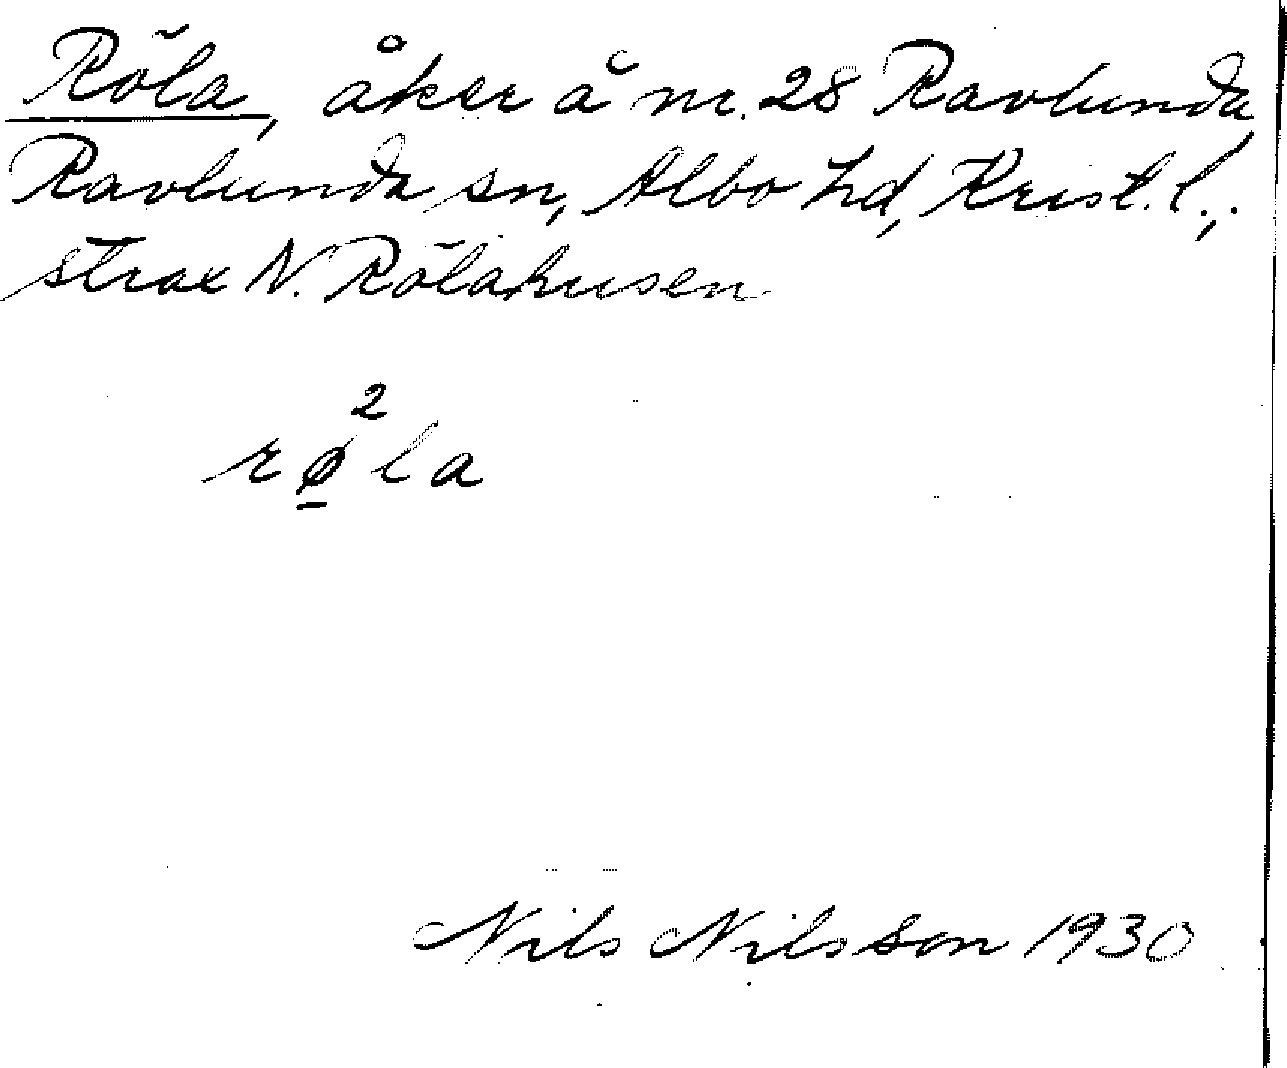 Röla, åker å nr. 28 Ravlunda
Ravlunda sn, Albo hd, Krist. l.,
strax N. Rölahusen
rø̱²la
Nils Nilsson 1930